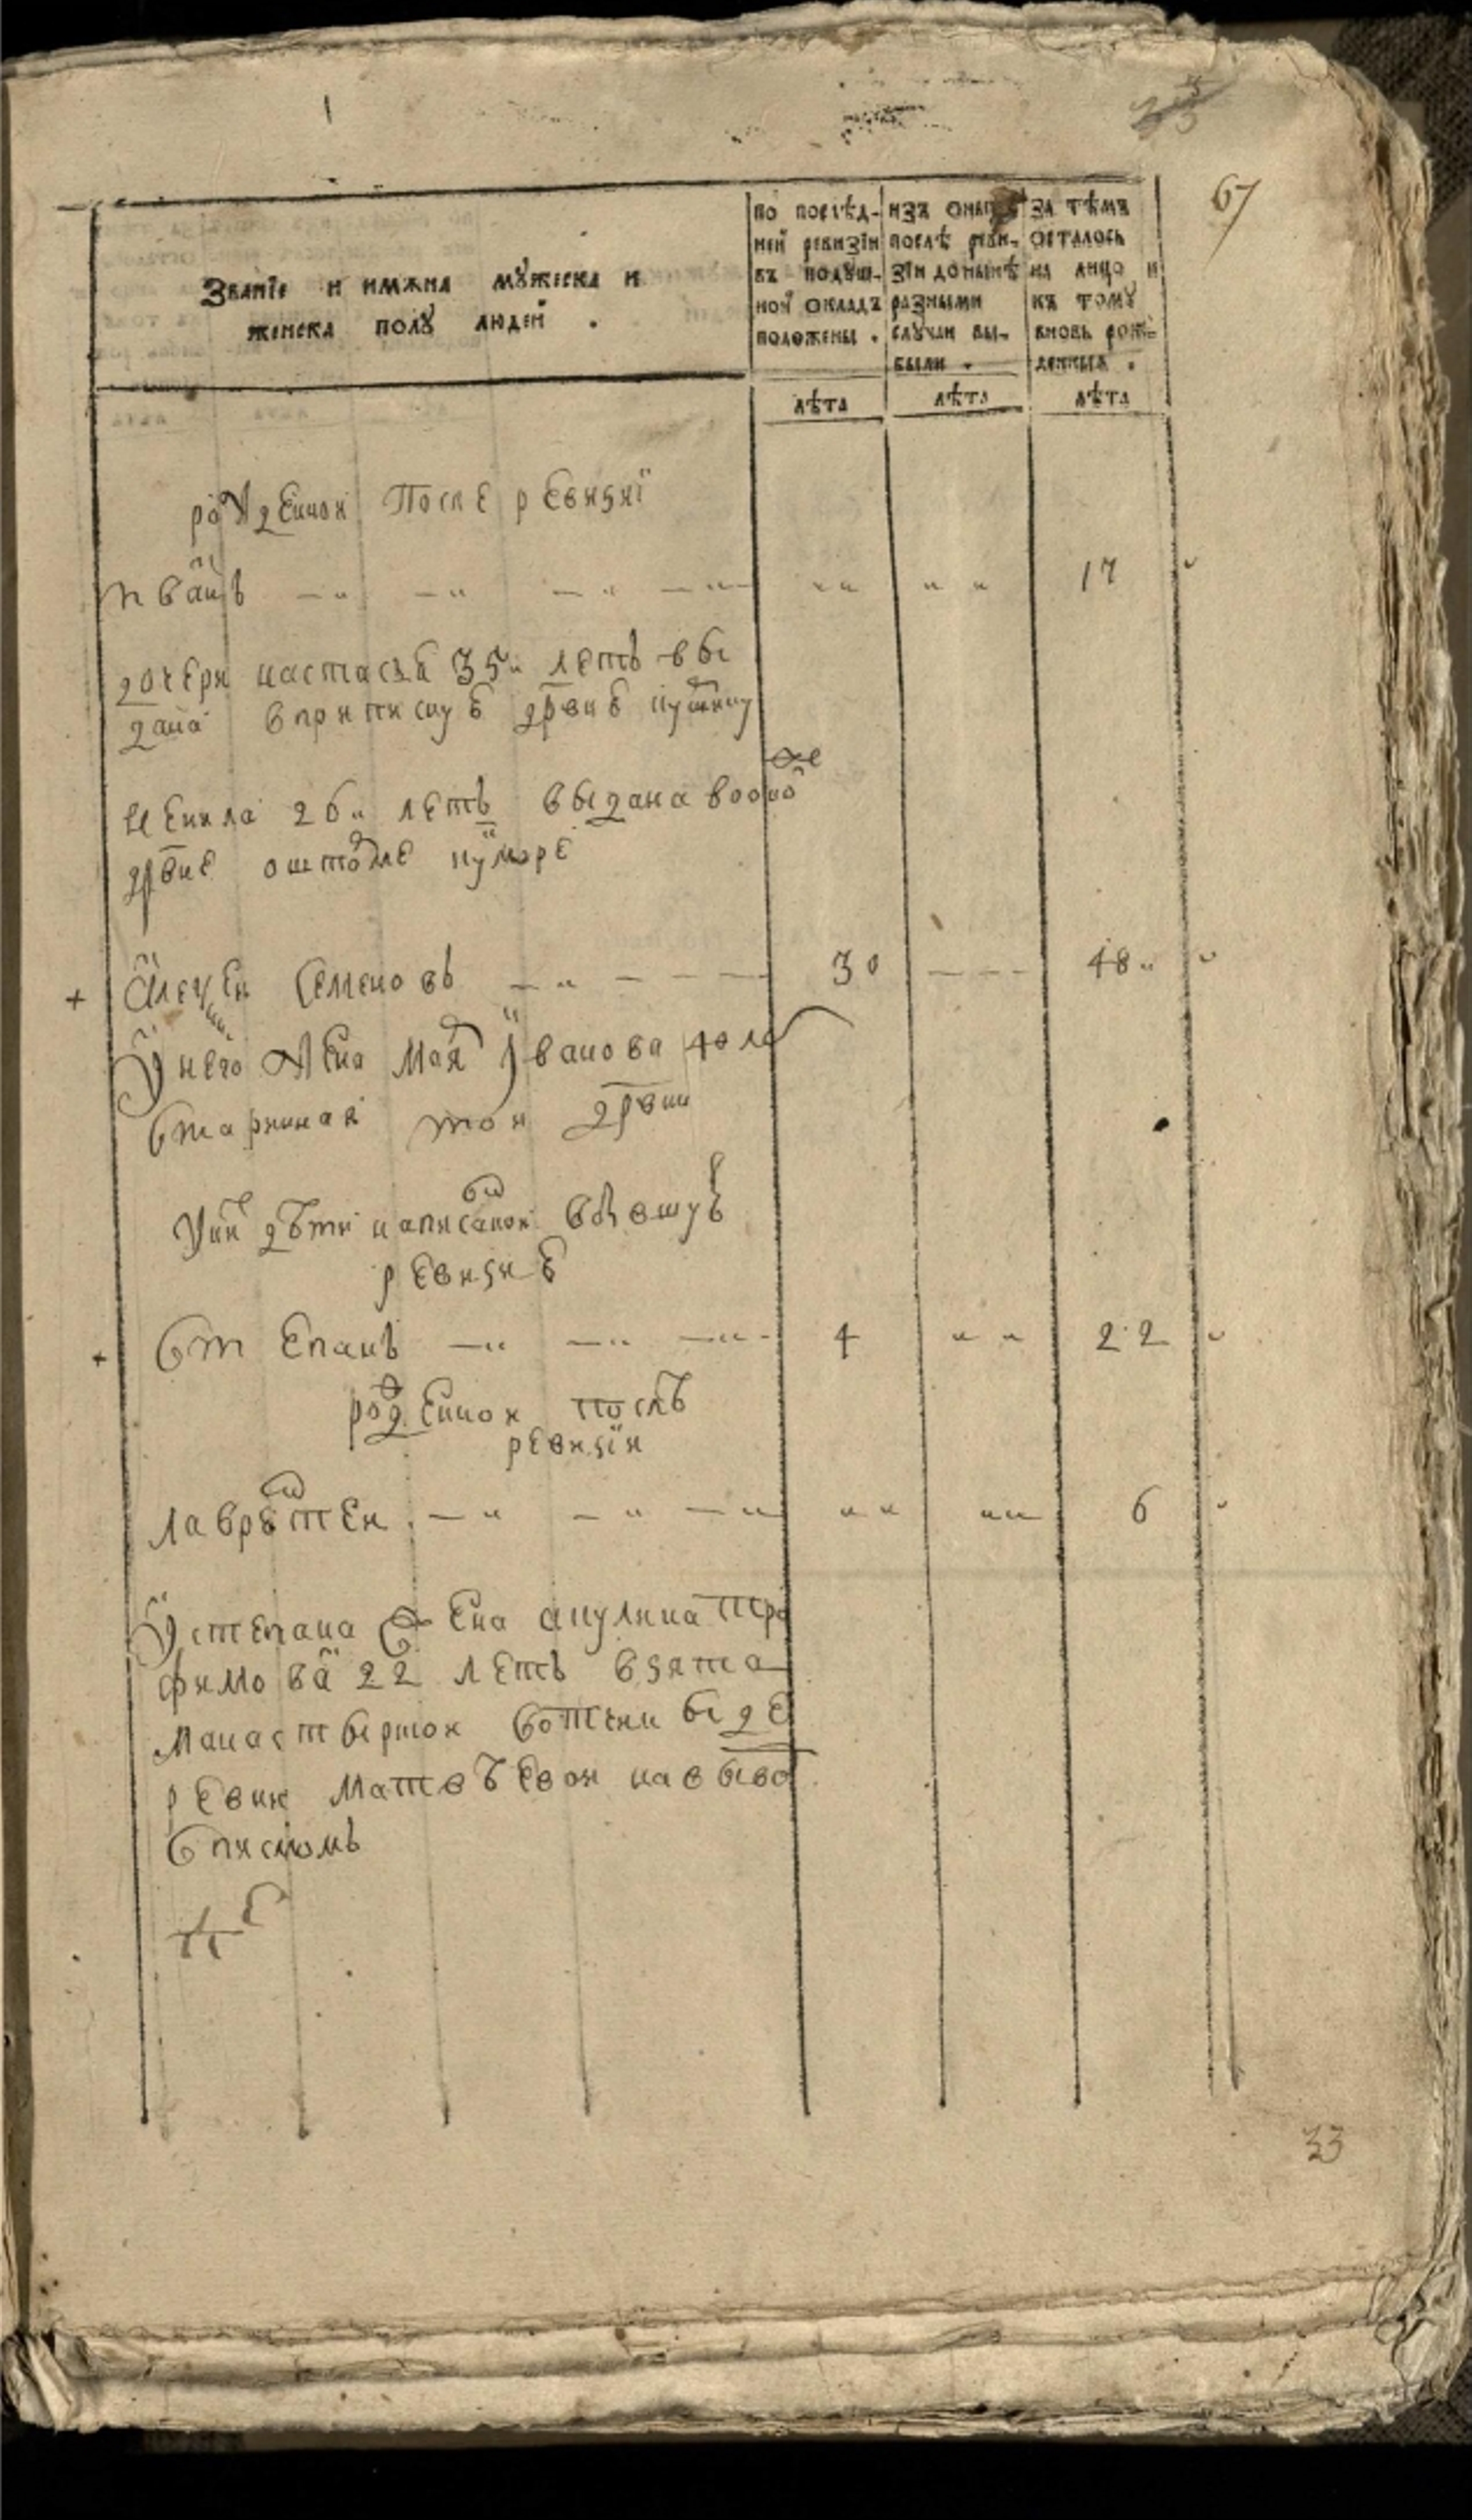 67
Званїе и имѧна мꙋжеска и
женска полꙋ людей .
по послѣд-
ней ревизїи
въ подꙋш-
ной окладъ
положены .
изъ онаго
послѣ реви-
зїи до нынѣ
разными
слꙋчаи вы-
были .
за тѣмъ
осталось
на лицо и
къ томꙋ
вновь рож-
денныя .
лѣта лѣта лѣта
рожденной после ревизиї
иванъ 17
дочери настасья 35 летъ вы
дана в приписнуѣ дрвнѣ
ненила 26 летъ выдана во оной
же
дрвне
+ алеѯей семеновъ 30 48
у него жена маря Иванова 40 ле
старинная той дрвни
у них дѣти написаной в бывшуѣ
ревизиѣ
+ степанъ 4 22
рожденной послѣ
ревизїи
лаврѣнтей 6
у степана жена акулина тро
фимова 22 летъ взята
манастырской вотчины де
ревни матвѣевой на вывод
с писмомъ
33